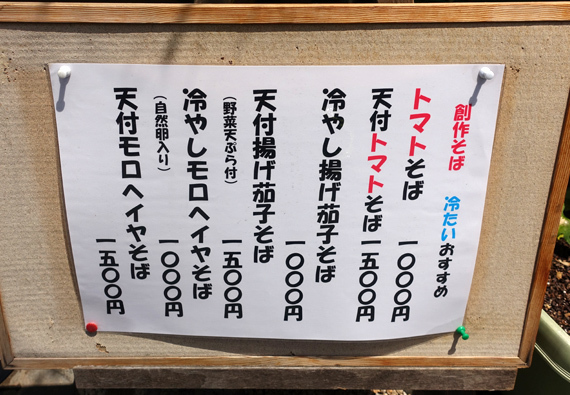 創作そば 冷たいおすすめ
トマトそば 一〇〇〇円
天付トマトそば 一五〇〇円
冷やし揚げ茄子そば 一〇〇〇円
天付揚げ茄子そば 一五〇〇円
(野菜天ぷら付)
冷やしモロヘイヤそば 一〇〇〇円
(自然卵入り)
天付モロヘイヤそば 一五〇〇円